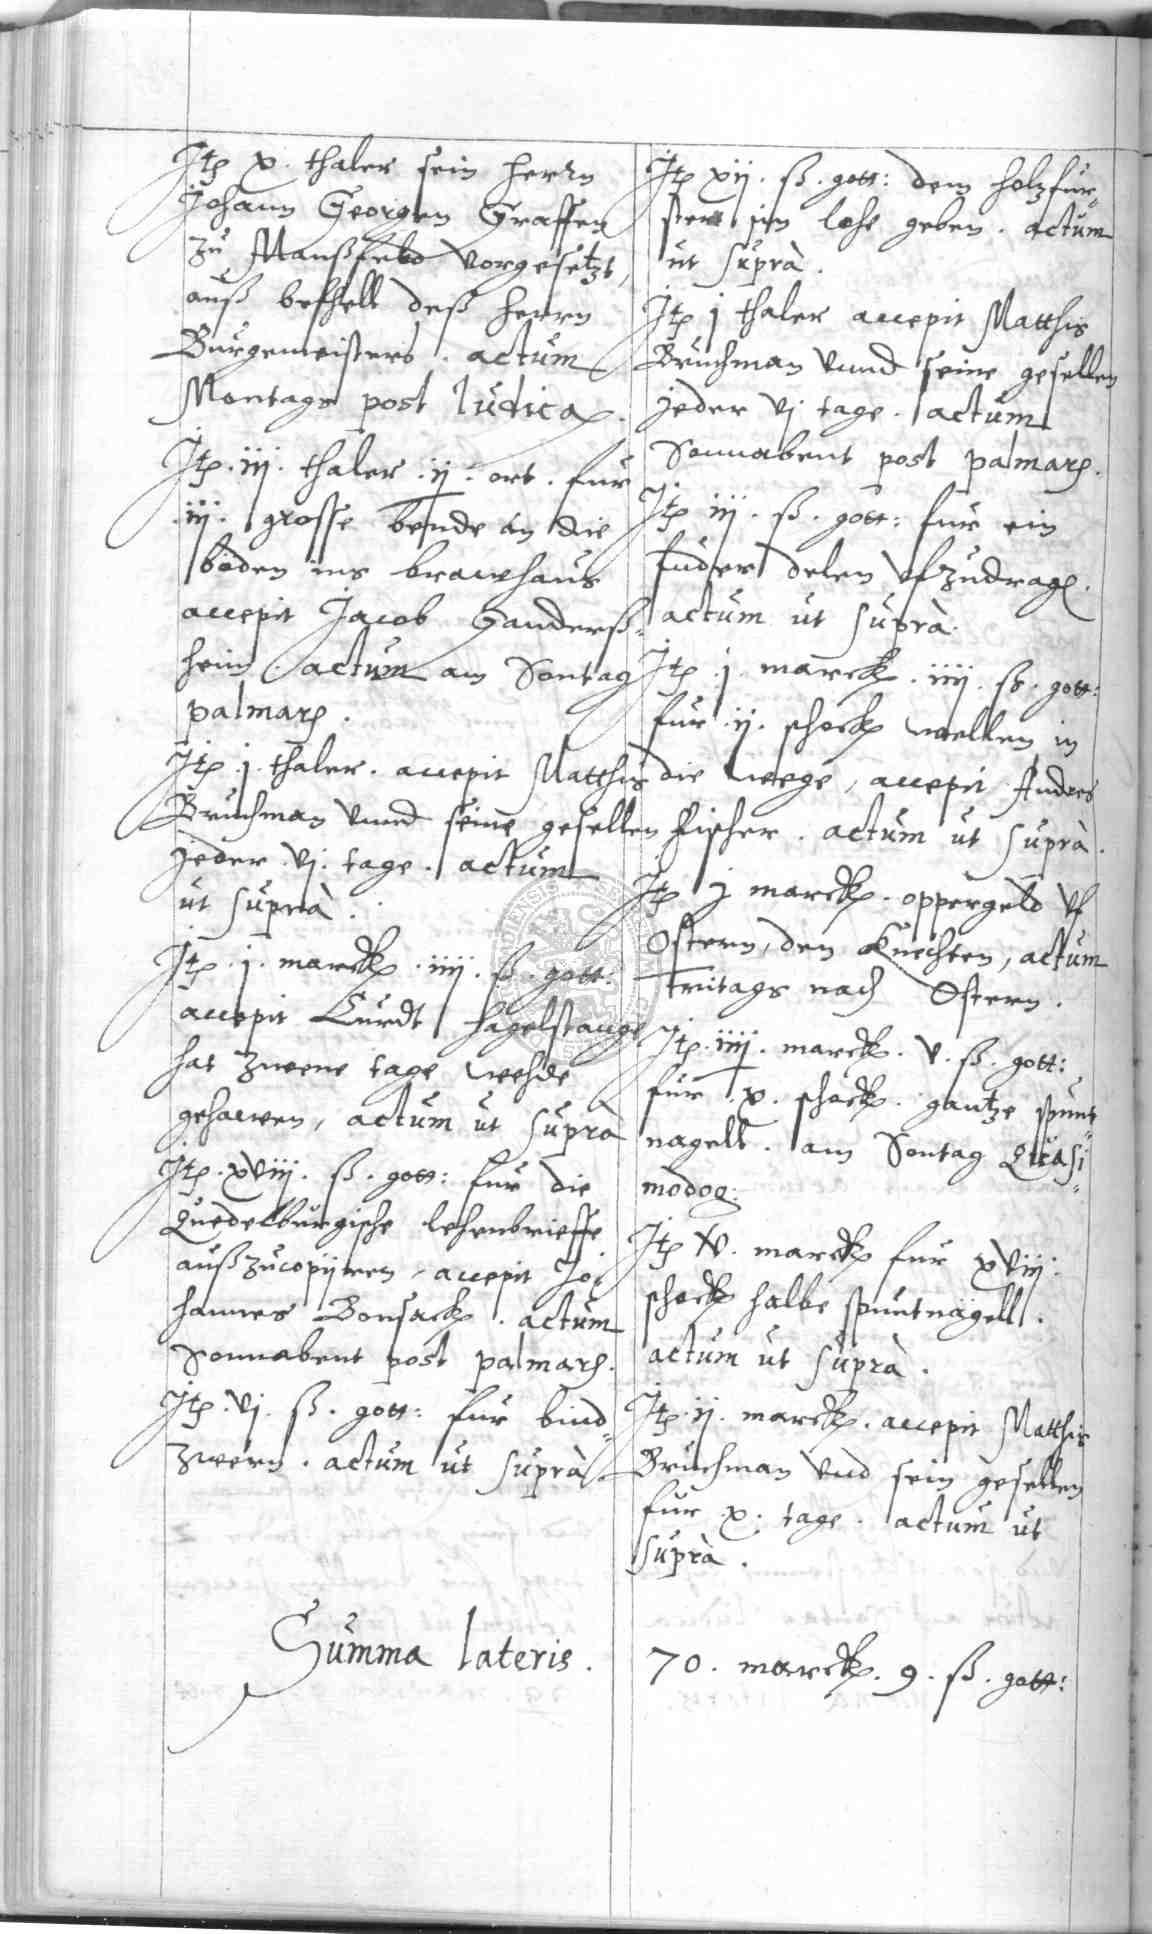 Jtē x. thaler sein herrn
Johann Georgen Graffen
zu Manßfeld vorgesetzt,
auß befhell deß herrn
Burgemeisters. actum
Montags post Iudica.
Jtē. iij. thaler. ij. ort. fur
iij. grosse bende an die
boden ins brawhauß
accepit Jacob Ganderß-
heim. actum am Sontag
palmarū.
Jtē. j. thaler. accepit Matthis
Bruchman vnnd seine gesellen
jeder. vj. tage. actum
ut suprà.
Jtē. j. marck. iiij. ß. gott:
accepit Curdt Hagelstange
hat zweene tage weyde
gehawen, actum ut suprà
Jtē. xviij. ß. gott: fur die
Quedelburgische lehenbrieffe
außzucopijren, accepit Jo-
hannes Bonsack. actum
Sonnabent post palmarū.
Jtē. vj. ß. gott: fur bind-
zwern. actum ut suprà.
Jtē xij. ß. gott: dem holzfur-
ster jm lohe geben. actum
ut suprà.
Jtē j thaler accepit Matthis
Bruchman vnnd seine gesellen
jeder vj tage. actum
Sonnabent post palmarū.
Jtē iij. ß. gott: fur ein
fuder delen vfzudragē.
actum ut suprà.
Jtē. j. marck. iiij. ß. gott:
fur. ij. schock wellen in
die weege, accepit Andres
Fischer. actum ut suprà.
Jtē j marck. oppergeld vf
Ostern, den Knechten, actum
Fritags nach Ostern.
Jtē. iiij. marck. v. ß. gott:
fur. x. schock. gantze spunt-
nagell. am Sontag Quasi-
modog:
Jtē v. marck fur xviij.
schock halbe spuntnägell.
actum ut suprà.
Jtē. ij. marck. accepit Matthis
Bruchman vnd sein gesellen
fur. x. tage. actum ut
suprà.
Summa lateris. 70. marck. 9. ß. gott: